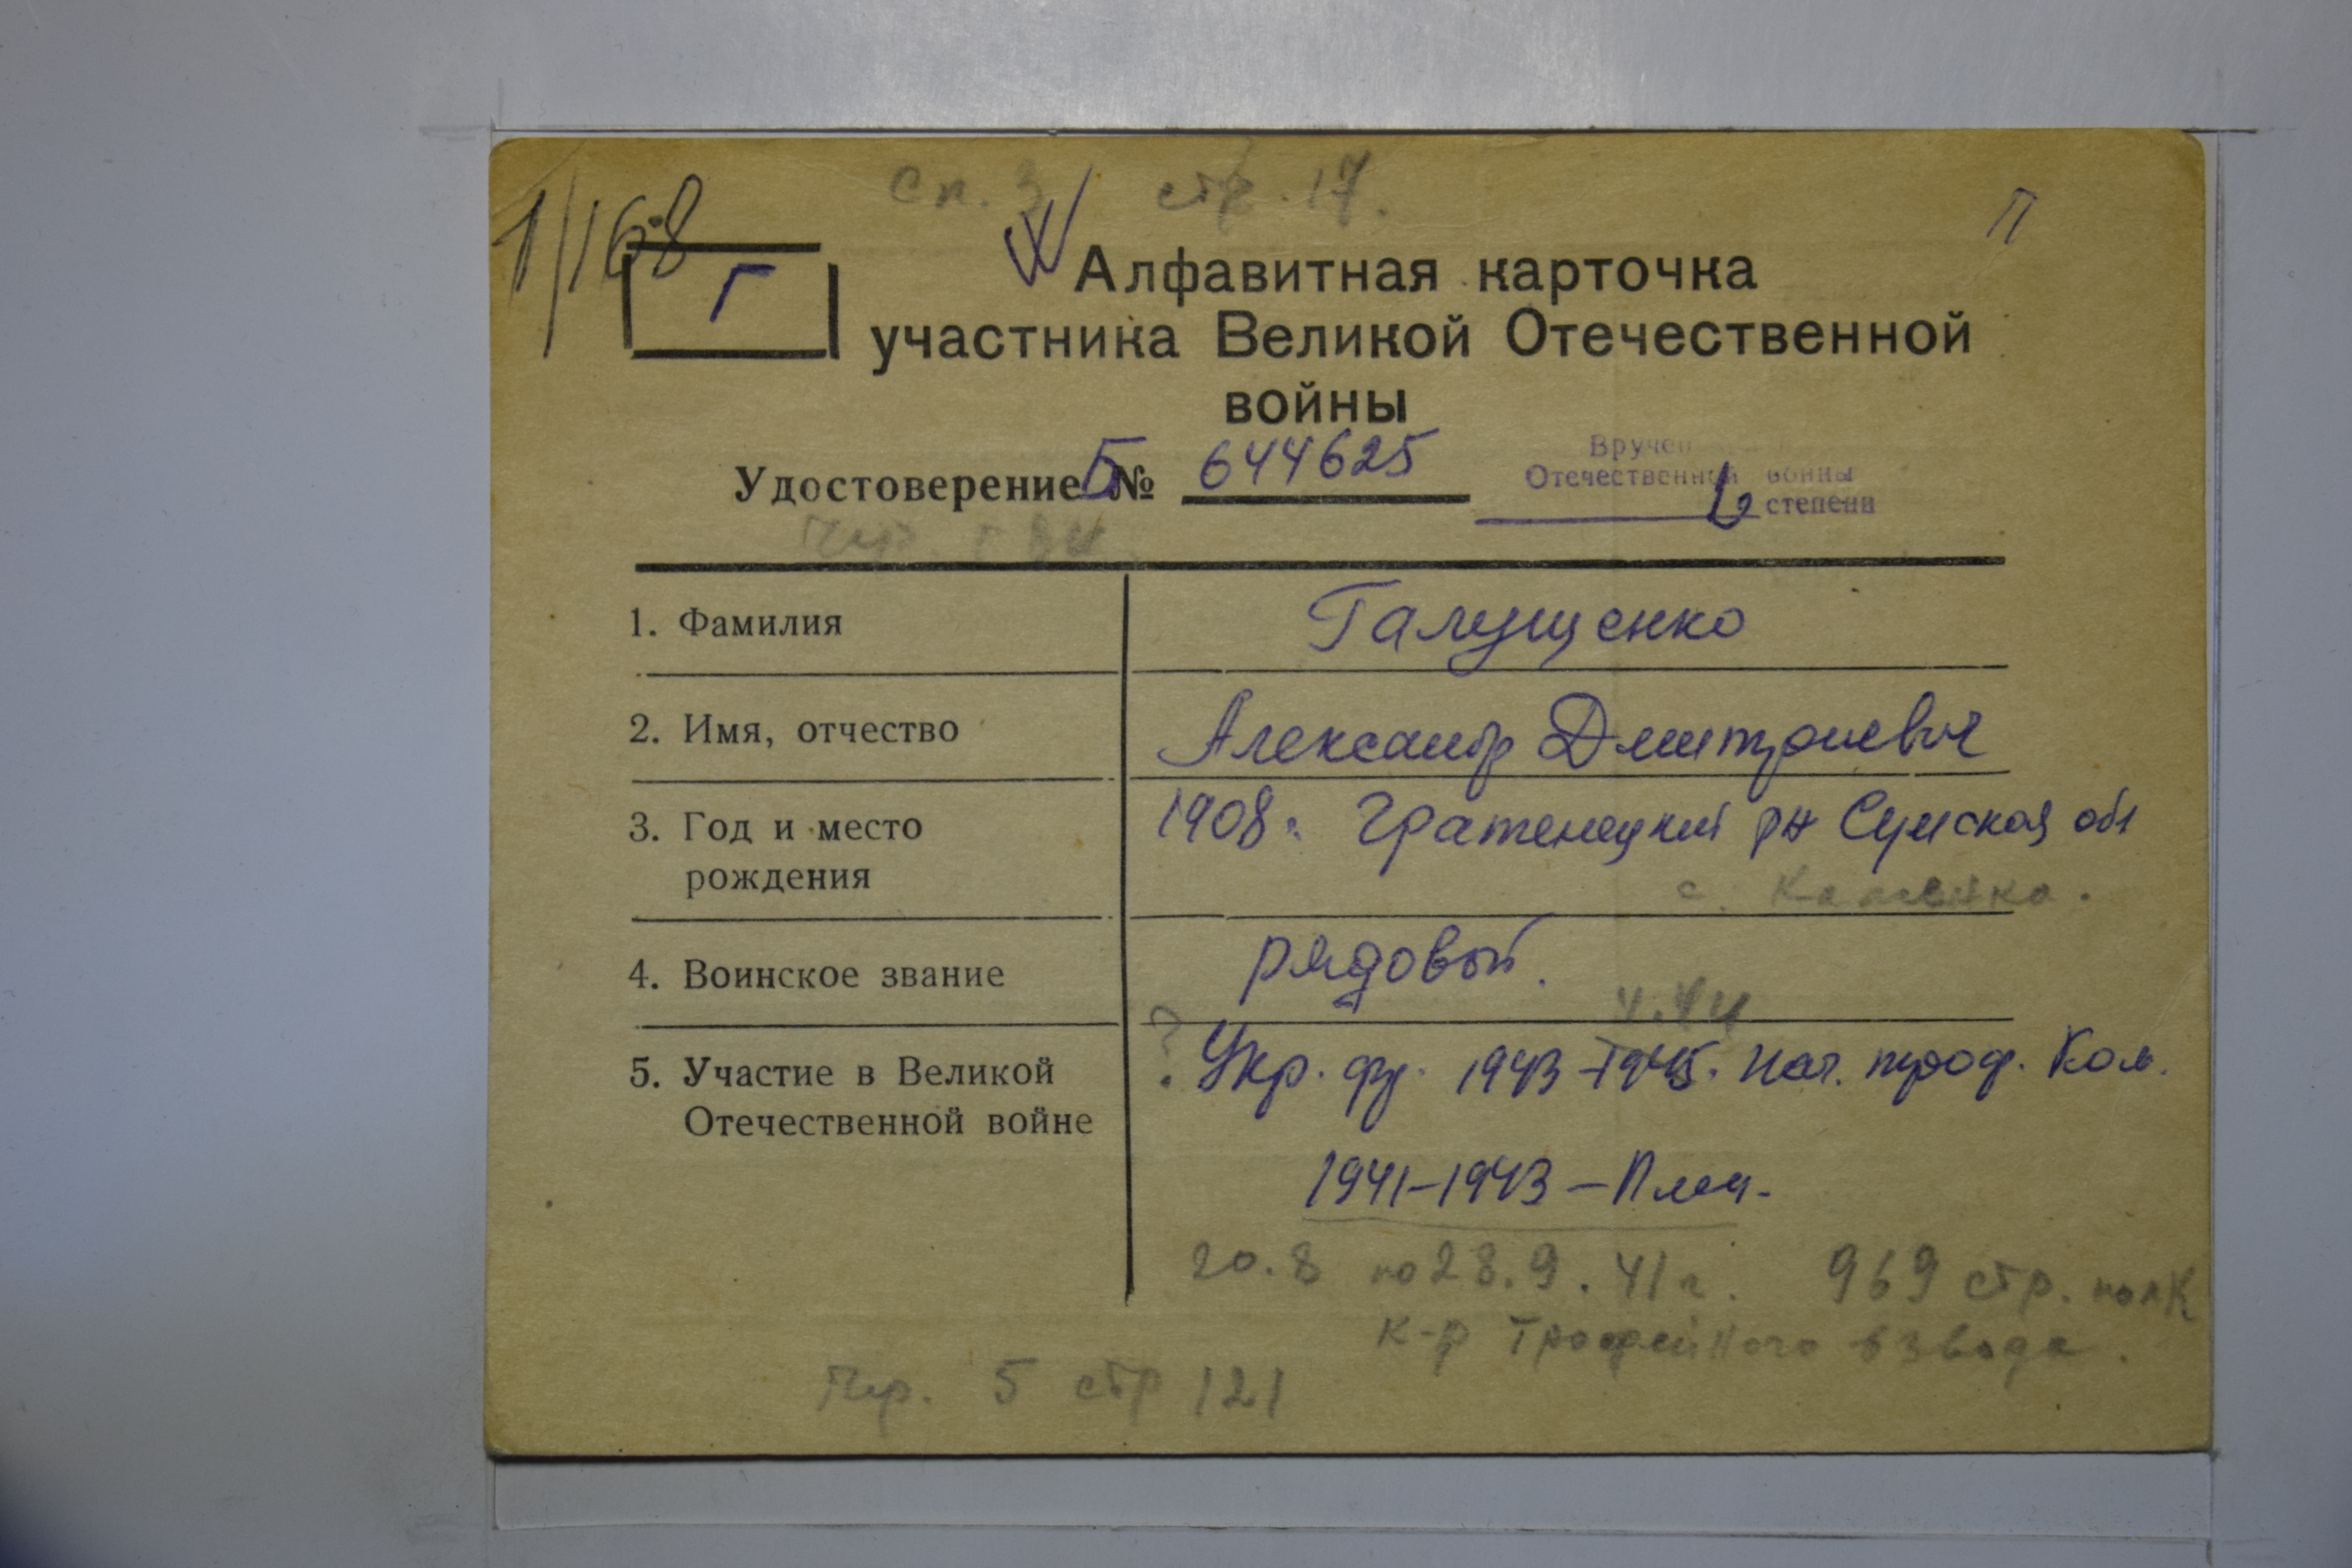 Сп. 3 стр. 17.
1/168
П
Г
Алфавитная карточка
участника Великой Отечественной
войны
Вручен
Удостоверение Б № 644625
Отечественной войны
степени
1. Фамилия Галущенко
2. Имя, отчество Александр Дмитриевич
3. Год и место 1908г. р-н Сумская обл
рождения с. Каменка.
4. Воинское звание рядовой.
5. Участие в Великой ? Укр. фр. 1943-1945. Нач. троф. Ком.
Отечественной войне
1941-1943-Плен.
20.8 по 28.9.41г. 969 стр. полк
к-р Трофейного взвода.
Пр. 5 стр 121